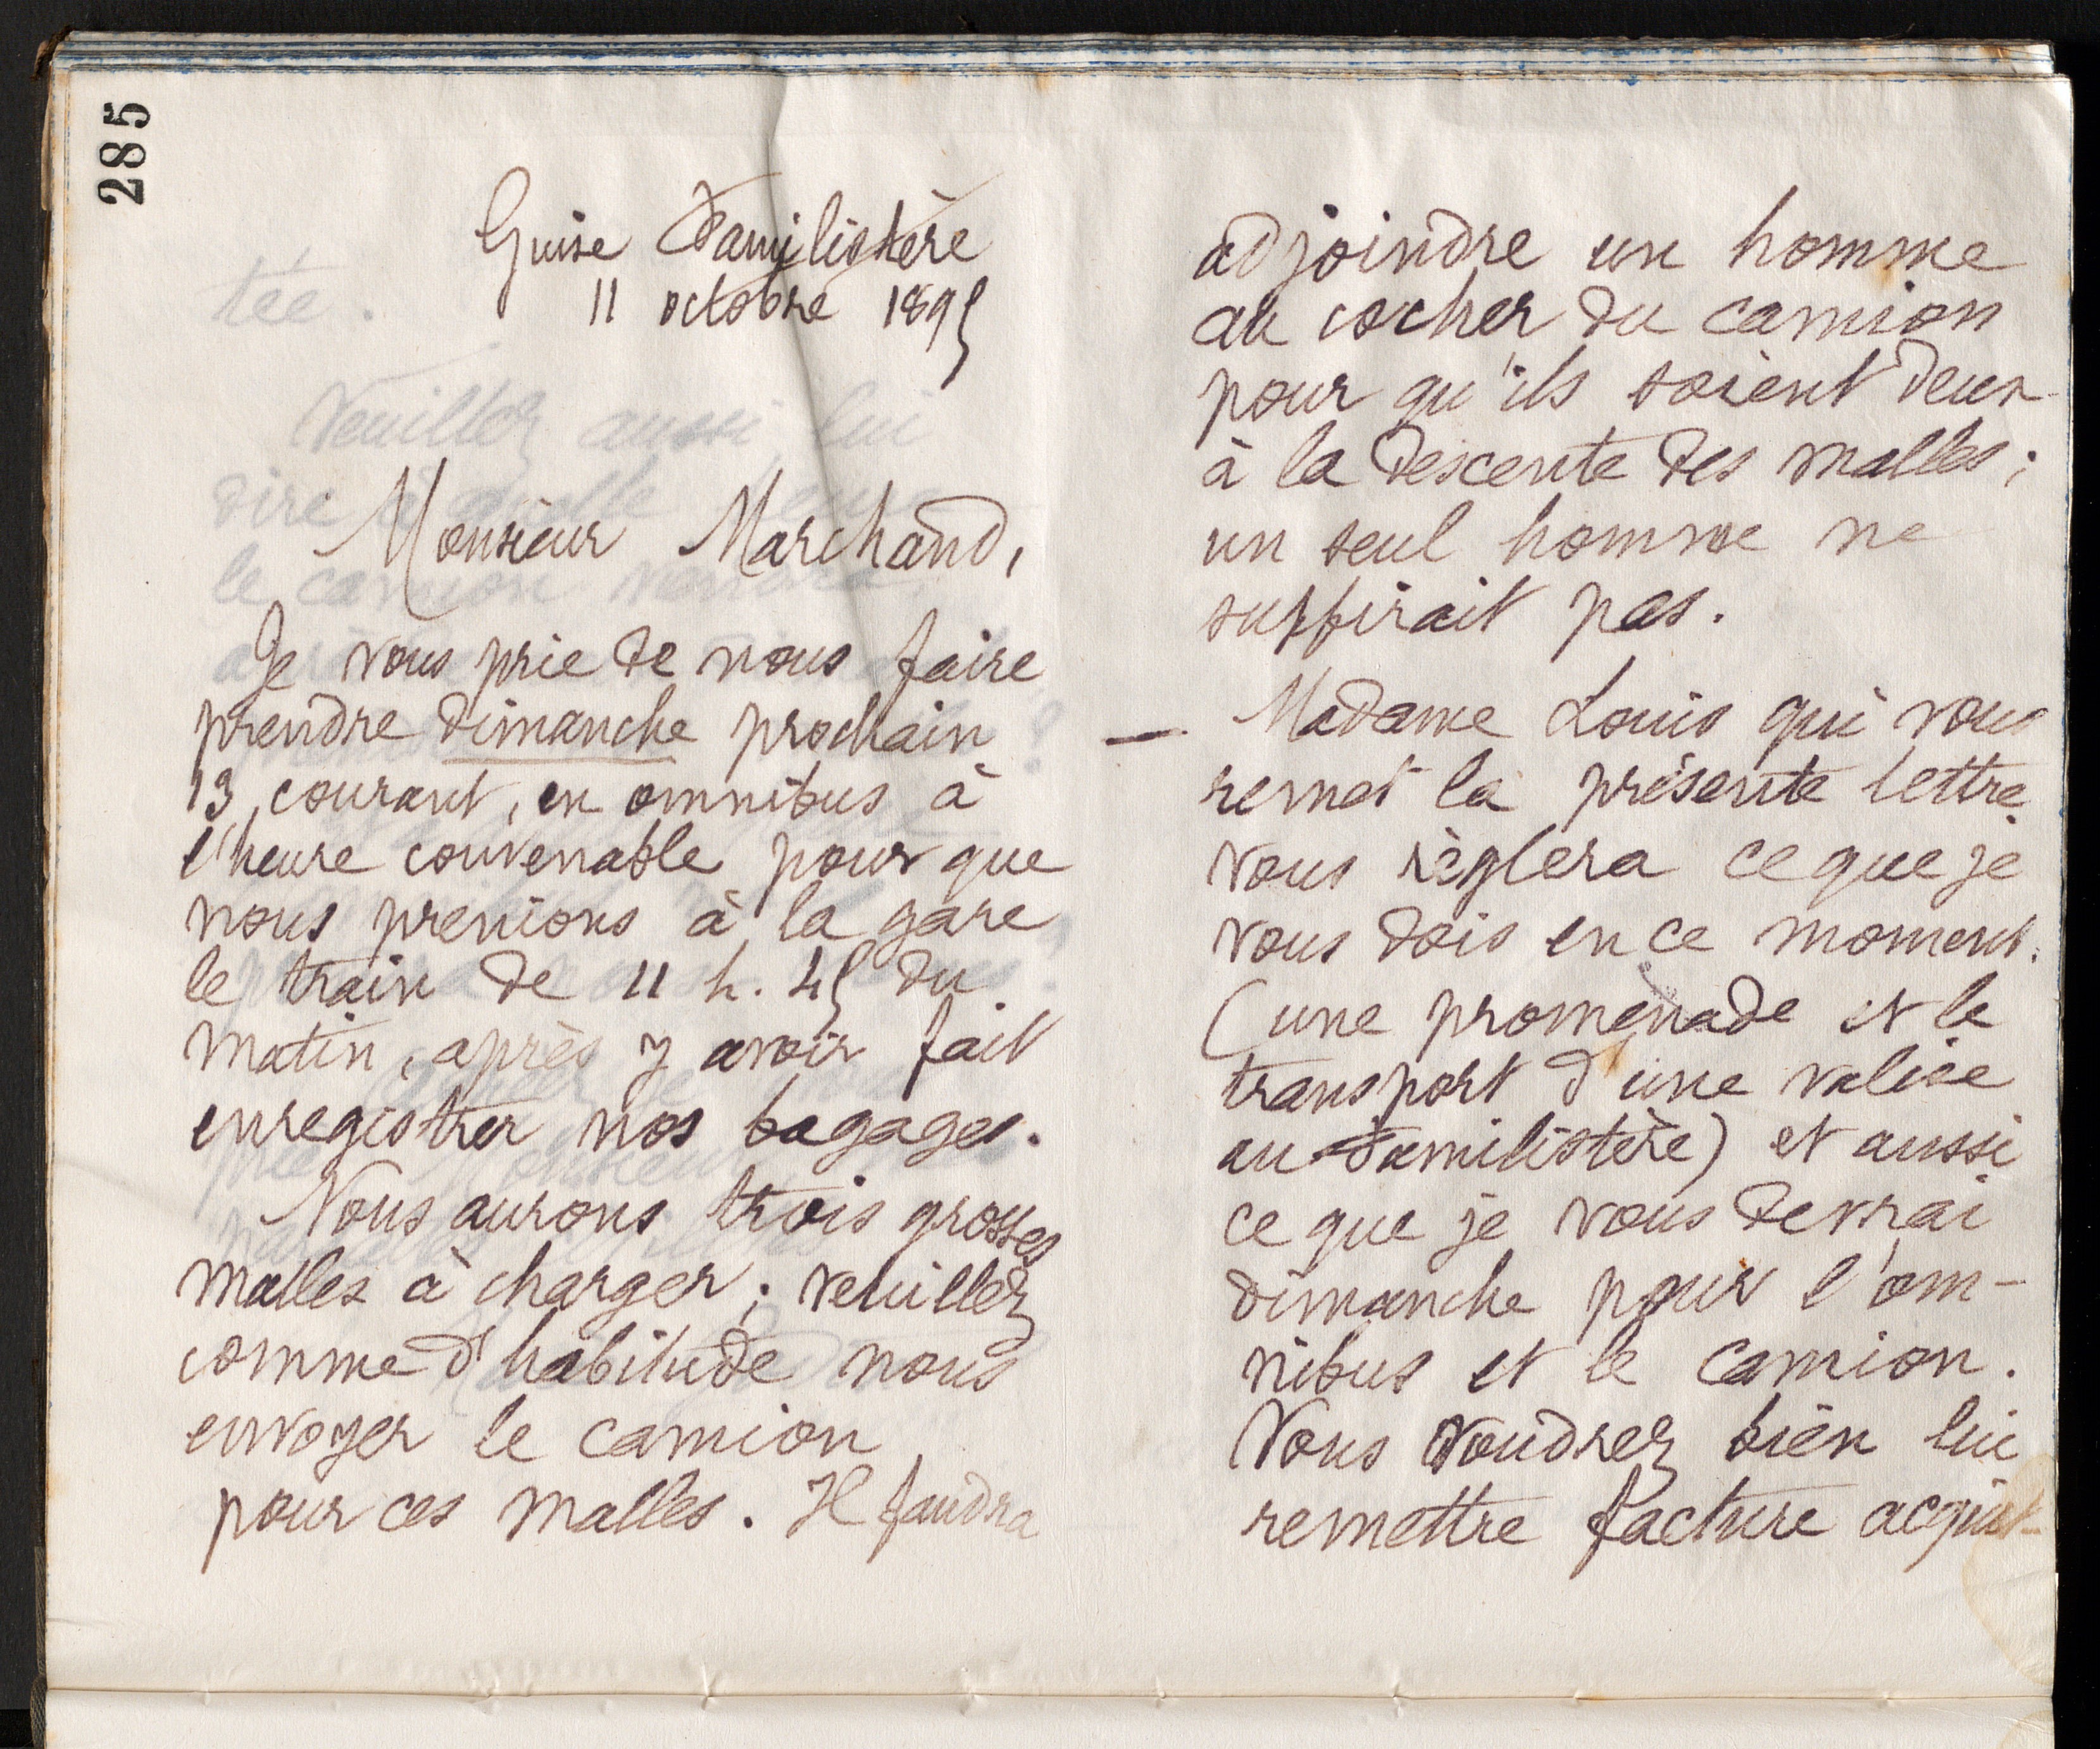 285
Guise Familistère
11 octobre 1895
Monsieur Marchand,
Je vous prie de nous faire
prendre dimanche prochain
13 courant, en omnibus à
l'heure convenable pour que
nous prenions à la gare
le train de 11 h. 45 du
matin, après y avoir fait
enregistrer nos bagages.
Nous aurons trois grosses
malles à charger ; veuillez
comme d'habitude nous
envoyer le camion
pour ces malles. Il faudra
adjoindre un homme
au cocher du camion
pour qu'ils soient deux
à la descente des malles ;
un seul homme ne
suffirait pas.
— Madame Louis qui vous
remet la présente lettre
vous règlera ce que je
vous dois en ce moment.
(une promenade et le
transport d'une valise
au Familistère) et aussi
ce que je vous devrai
dimanche pour l'om-
nibus et le camion.
Vous voudrez bien lui
remettre facture acquit-
tée.
Veuillez aussi lui
dire
le camion